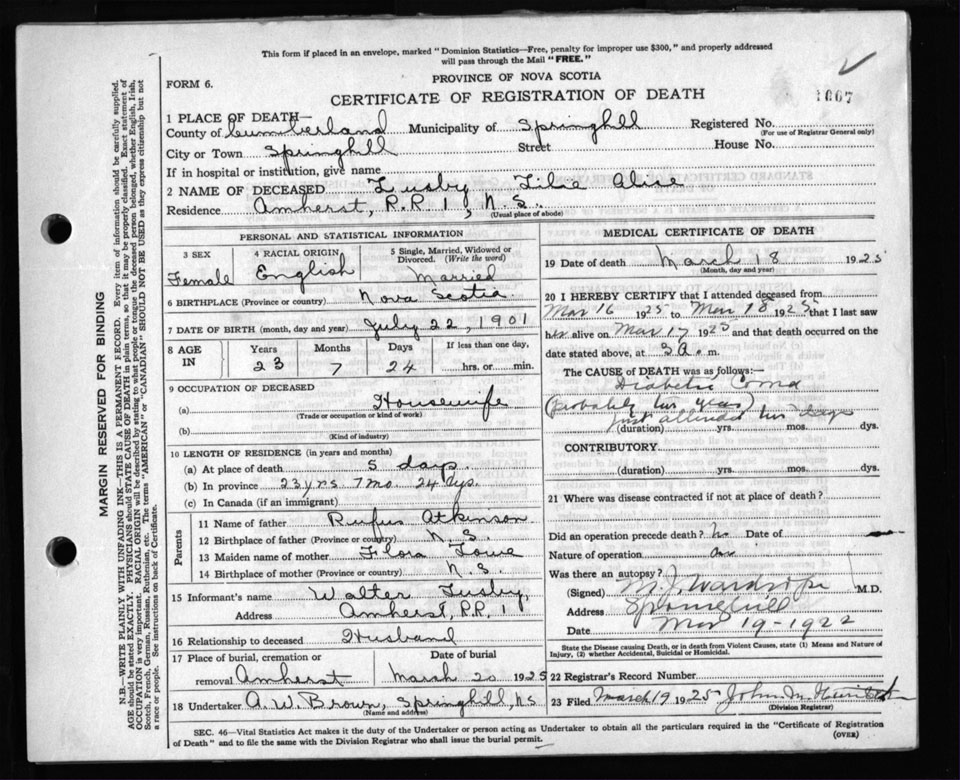 This form if placed in an envelope, marked "Dominion Statistics—Free, penalty for improper use $300," and properly addressed
will pass through the Mail "FREE."
PROVINCE OF NOVA SCOTIA
FORM 6.
CERTIFICATE OF REGISTRATION OF DEATH
1007
1 PLACE OF DEATH—
County of Cumberland Municipality of Springhill Registered No.
(For use of Registrar General only)
City or Town Springhill Street House No.
If in hospital or institution, give name
2 NAME OF DECEASED Lusby Lilie Alice
Residence Amherst, R.R 1, N.S.
(Usual place of abode)
PERSONAL AND STATISTICAL INFORMATION
3 SEX Female
4 RACIAL ORIGIN English
5 Single, Married, Widowed or Divorced. (Write the word) Married
6 BIRTHPLACE (Province or country) Nova Scotia
7 DATE OF BIRTH (month, day and year) July 22, 1901
8 AGE IN Years 23 Months 7 Days 24 If less than one day, hrs. or min.
9 OCCUPATION OF DECEASED
(a) Housewife
(Trade or occupation or kind of work)
(b)
(Kind of industry)
10 LENGTH OF RESIDENCE (in years and months)
(a) At place of death 5 days
(b) In province 23 yrs 7 mo. 24 dys.
(c) In Canada (if an immigrant)
Parents
11 Name of father Rufus Atkinson
12 Birthplace of father (Province or country) N.S.
13 Maiden name of mother Flora Lowe
14 Birthplace of mother (Province or country) N.S.
15 Informant's name Walter Lusby
Address Amherst, R.R. 1
16 Relationship to deceased Husband
17 Place of burial, cremation or removal Amherst
Date of burial March 20 1925
18 Undertaker A. W. Brown, Springhill, NS
(Name and address)
MEDICAL CERTIFICATE OF DEATH
19 Date of death March 18 1925
(Month, day and year)
20 I HEREBY CERTIFY that I attended deceased from
Mar 16 1925 to Mar 18 1925 that I last saw
her alive on Mar 17 1925 and that death occurred on
date stated above, at 3 a. m.
The CAUSE of DEATH was as follows:—
Diabetic Coma
(probably two years)
just attended two days
(duration) yrs. mos. dys.
CONTRIBUTORY.
(duration) yrs. mos. dys.
21 Where was disease contracted if not at place of death?
Did an operation precede death? no Date of
Nature of operation
Was there an autopsy?
(Signed) Wardrope M.D.
Address Springhill
Date Mar 19-1922
State the Disease causing Death, or in death from Violent Causes, state (1) Means and Nature of
Injury, (2) whether Accidental, Suicidal or Homicidal.
22 Registrar's Record Number
23 Filed March 19 1925 John M.
(Division Registrar)
SEC. 46—Vital Statistics Act makes it the duty of the Undertaker or person acting as Undertaker to obtain all the particulars required in the "Certificate of Registration
of Death" and to file the same with the Division Registrar who shall issue the burial permit.
(OVER)
MARGIN RESERVED FOR BINDING
N.B.—WRITE PLAINLY WITH UNFADING INK—THIS IS A PERMANENT RECORD. Every item of information should be carefully supplied.
AGE should be stated EXACTLY. PHYSICIANS should STATE CAUSE OF DEATH in plain terms, so that it may be properly classified. Exact statement of
OCCUPATION is very important. RACIAL ORIGIN will be described by stating to what people or tongue the deceased person belonged, whether English, Irish,
Scotch, French, German, Russian, Ruthenian, etc. The terms "AMERICAN" or "CANADIAN" SHOULD NOT BE USED as they express citizenship but not
a race or people. See instructions on back of Certificate.